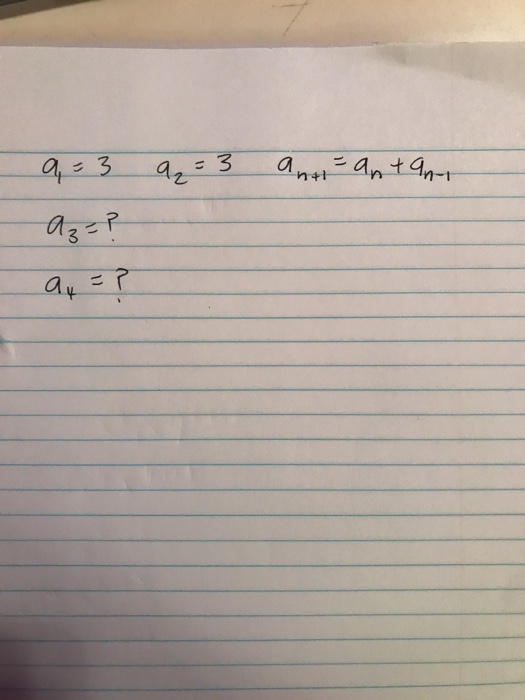 a₁ = 3 a₂ = 3 aₙ₊₁ = aₙ + aₙ₋₁
a₃ = ?
a₄ = ?